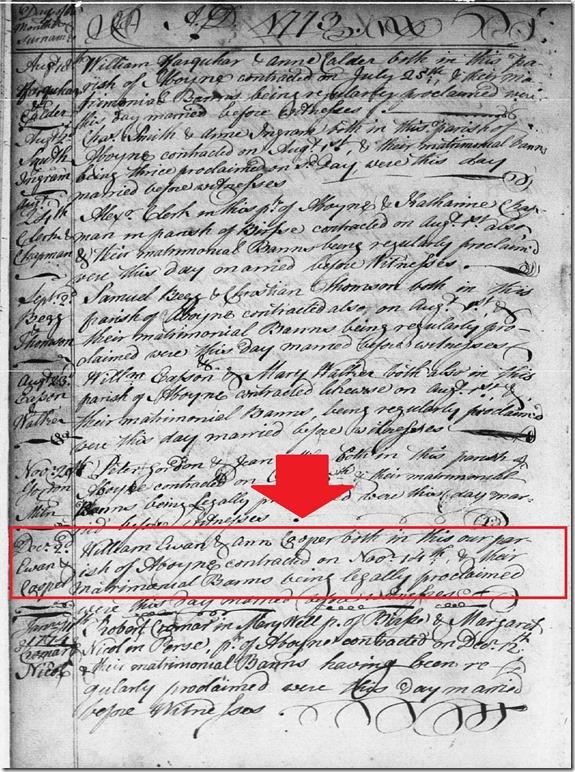 A.D. 1773
Day of
Month &
Surname
Aug: 18th William Farquhar & Anne Calder both in this pa-
Farquhar rish of Aboyne contracted on July 25th & their ma-
& trimonial Banns being regularly proclaimed were
Calder this day married before witnesses
Aug: Cha: Smith & Anne Ingram both in this parish of
Smith Aboyne contracted on Aug: 1st & their matrimonial Banns
& being thrice proclaimed on day, were this day
Ingram married before witnesses
Aug: Alexr. Clerk in this pr. of Aboyne & Katharine Chap-
Clerk & man in parish of Birse contracted on Aug: 1st also
Chapman & their matrimonial Banns being regularly proclaimd
were this day married before Witnesses
Sept: 2d Samuel Begg & Christian Thomson both in this
Begg parish of Aboyne contracted also, on Aug: 1st &
& their matrimonial Banns being regularly pro-
Thomson claimed were this day married before witnesses
Aug: 23 Willm Easson & Mary Walker both also in this
Easson parish of Aboyne contracted likewise on Aug: 1st &
& their matrimonial Banns, being regularly proclaimed
Walker were this day married before witnesses
Nov: Peter Gordon & Jean both in this parish of
Gordon Aboyne contracted on & their matrimonial
& Banns being legally proclaimed were this day mar-
Miln ried before witnesses
Dec: 2d William Ewan & Ann Cooper both in this our par-
Ewan & ish of Aboyne contracted on Nov: 14th, & their
Cooper matrimonial Banns being legally proclaimed
were this day married before witnesses
1774 Robert Cromar in Mary Well pr. of & Margaret
Cromar Nicol in Perse, pr. of Aboyne contracted on Decr. 12th
& & their matrimonial Banns having been re-
Nicol gularly proclaimed were this day married
before Witnesses